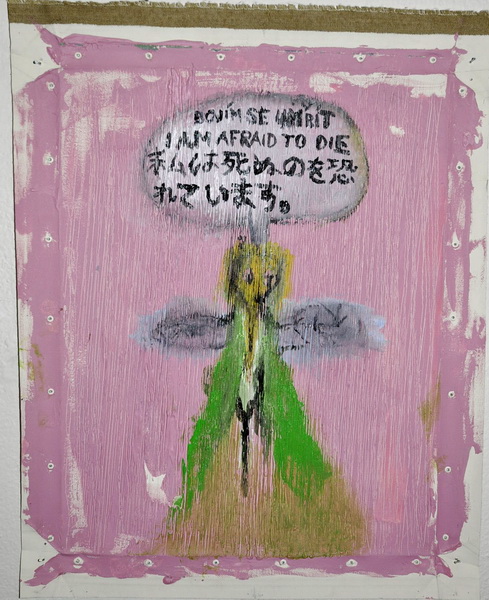 BOJÍM SE UMŘÍT
I AM AFRAID TO DIE
私は死ぬのを恐
れています。